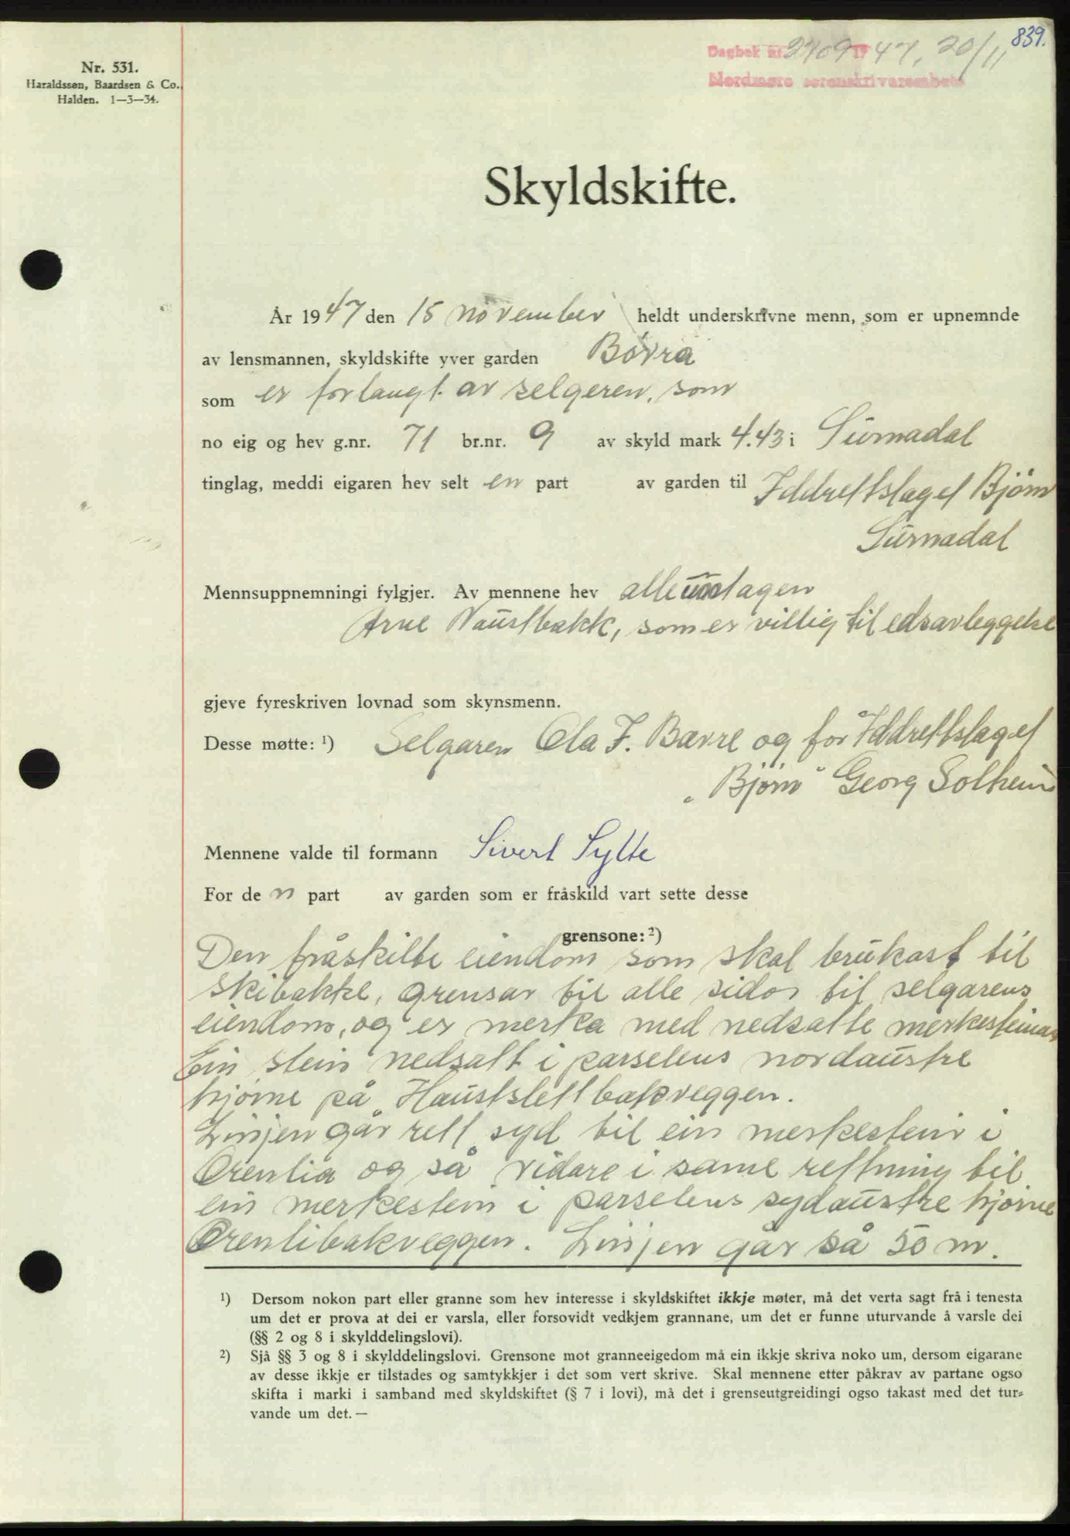 839.
Dagbok nr. 2709 1947, 20/11
Nordmøre sorenskrivarembete
Nr. 531.
Haraldssøn, Baardsen & Co.
Halden. 1—3—34.
Skyldskifte.
År 1947 den 15 november heldt underskrivne menn, som er upnemnde
av lensmannen, skyldskifte yver garden Bøvra
som er forlangt av selgeren, som
no eig og hev g.nr. 71 br.nr. 9 av skyld mark 4.43 i Surnadal
tinglag, meddi eigaren hev selt en part av garden til Iddrettslaget Bjørn
Surnadal
Mennsuppnemningi fylgjer. Av mennene hev alle untagen
Arne Naustbakk, som er villig til edsavleggelse
gjeve fyreskriven lovnad som skynsmenn.
Desse møtte: ¹) Selgaren Ola F. Bævre og for Iddrettslaget
„Bjørn" Georg Solheim
Mennene valde til formann Sivert Sylte
For de n part av garden som er fråskild vart sette desse
grensone: ²)
Den fråskilte eiendom som skal brukast til
skibakke, grensar til alle sidor til selgarens
eiendom, og er merka med nedsatte merkesteinar
Ein stein nedsatt i parselens nordaustre
hjørne på Haustslettbakveggen.
Linjen går rett syd til ein merkestein i
Orenlia og så vidare i same rettning til
ein merkestein i parselens sydaustre hjørne
Orenlibakveggen. Linjen går så 50 m.
¹) Dersom nokon part eller granne som hev interesse i skyldskiftet ikkje møter, må det verta sagt frå i tenesta
um det er prova at dei er varsla, eller forsovidt vedkjem grannane, um det er funne uturvande å varsle dei
(§§ 2 og 8 i skylddelingslovi).
²) Sjå §§ 3 og 8 i skylddelingslovi. Grensone mot granneeigedom må ein ikkje skriva noko um, dersom eigarane
av desse ikkje er tilstades og samtykkjer i det som vert skrive. Skal mennene etter påkrav av partane ogso
skifta i marki i samband med skyldskiftet (§ 7 i lovi), må det i grenseutgreidingi ogso takast med det tur-
vande um det. —